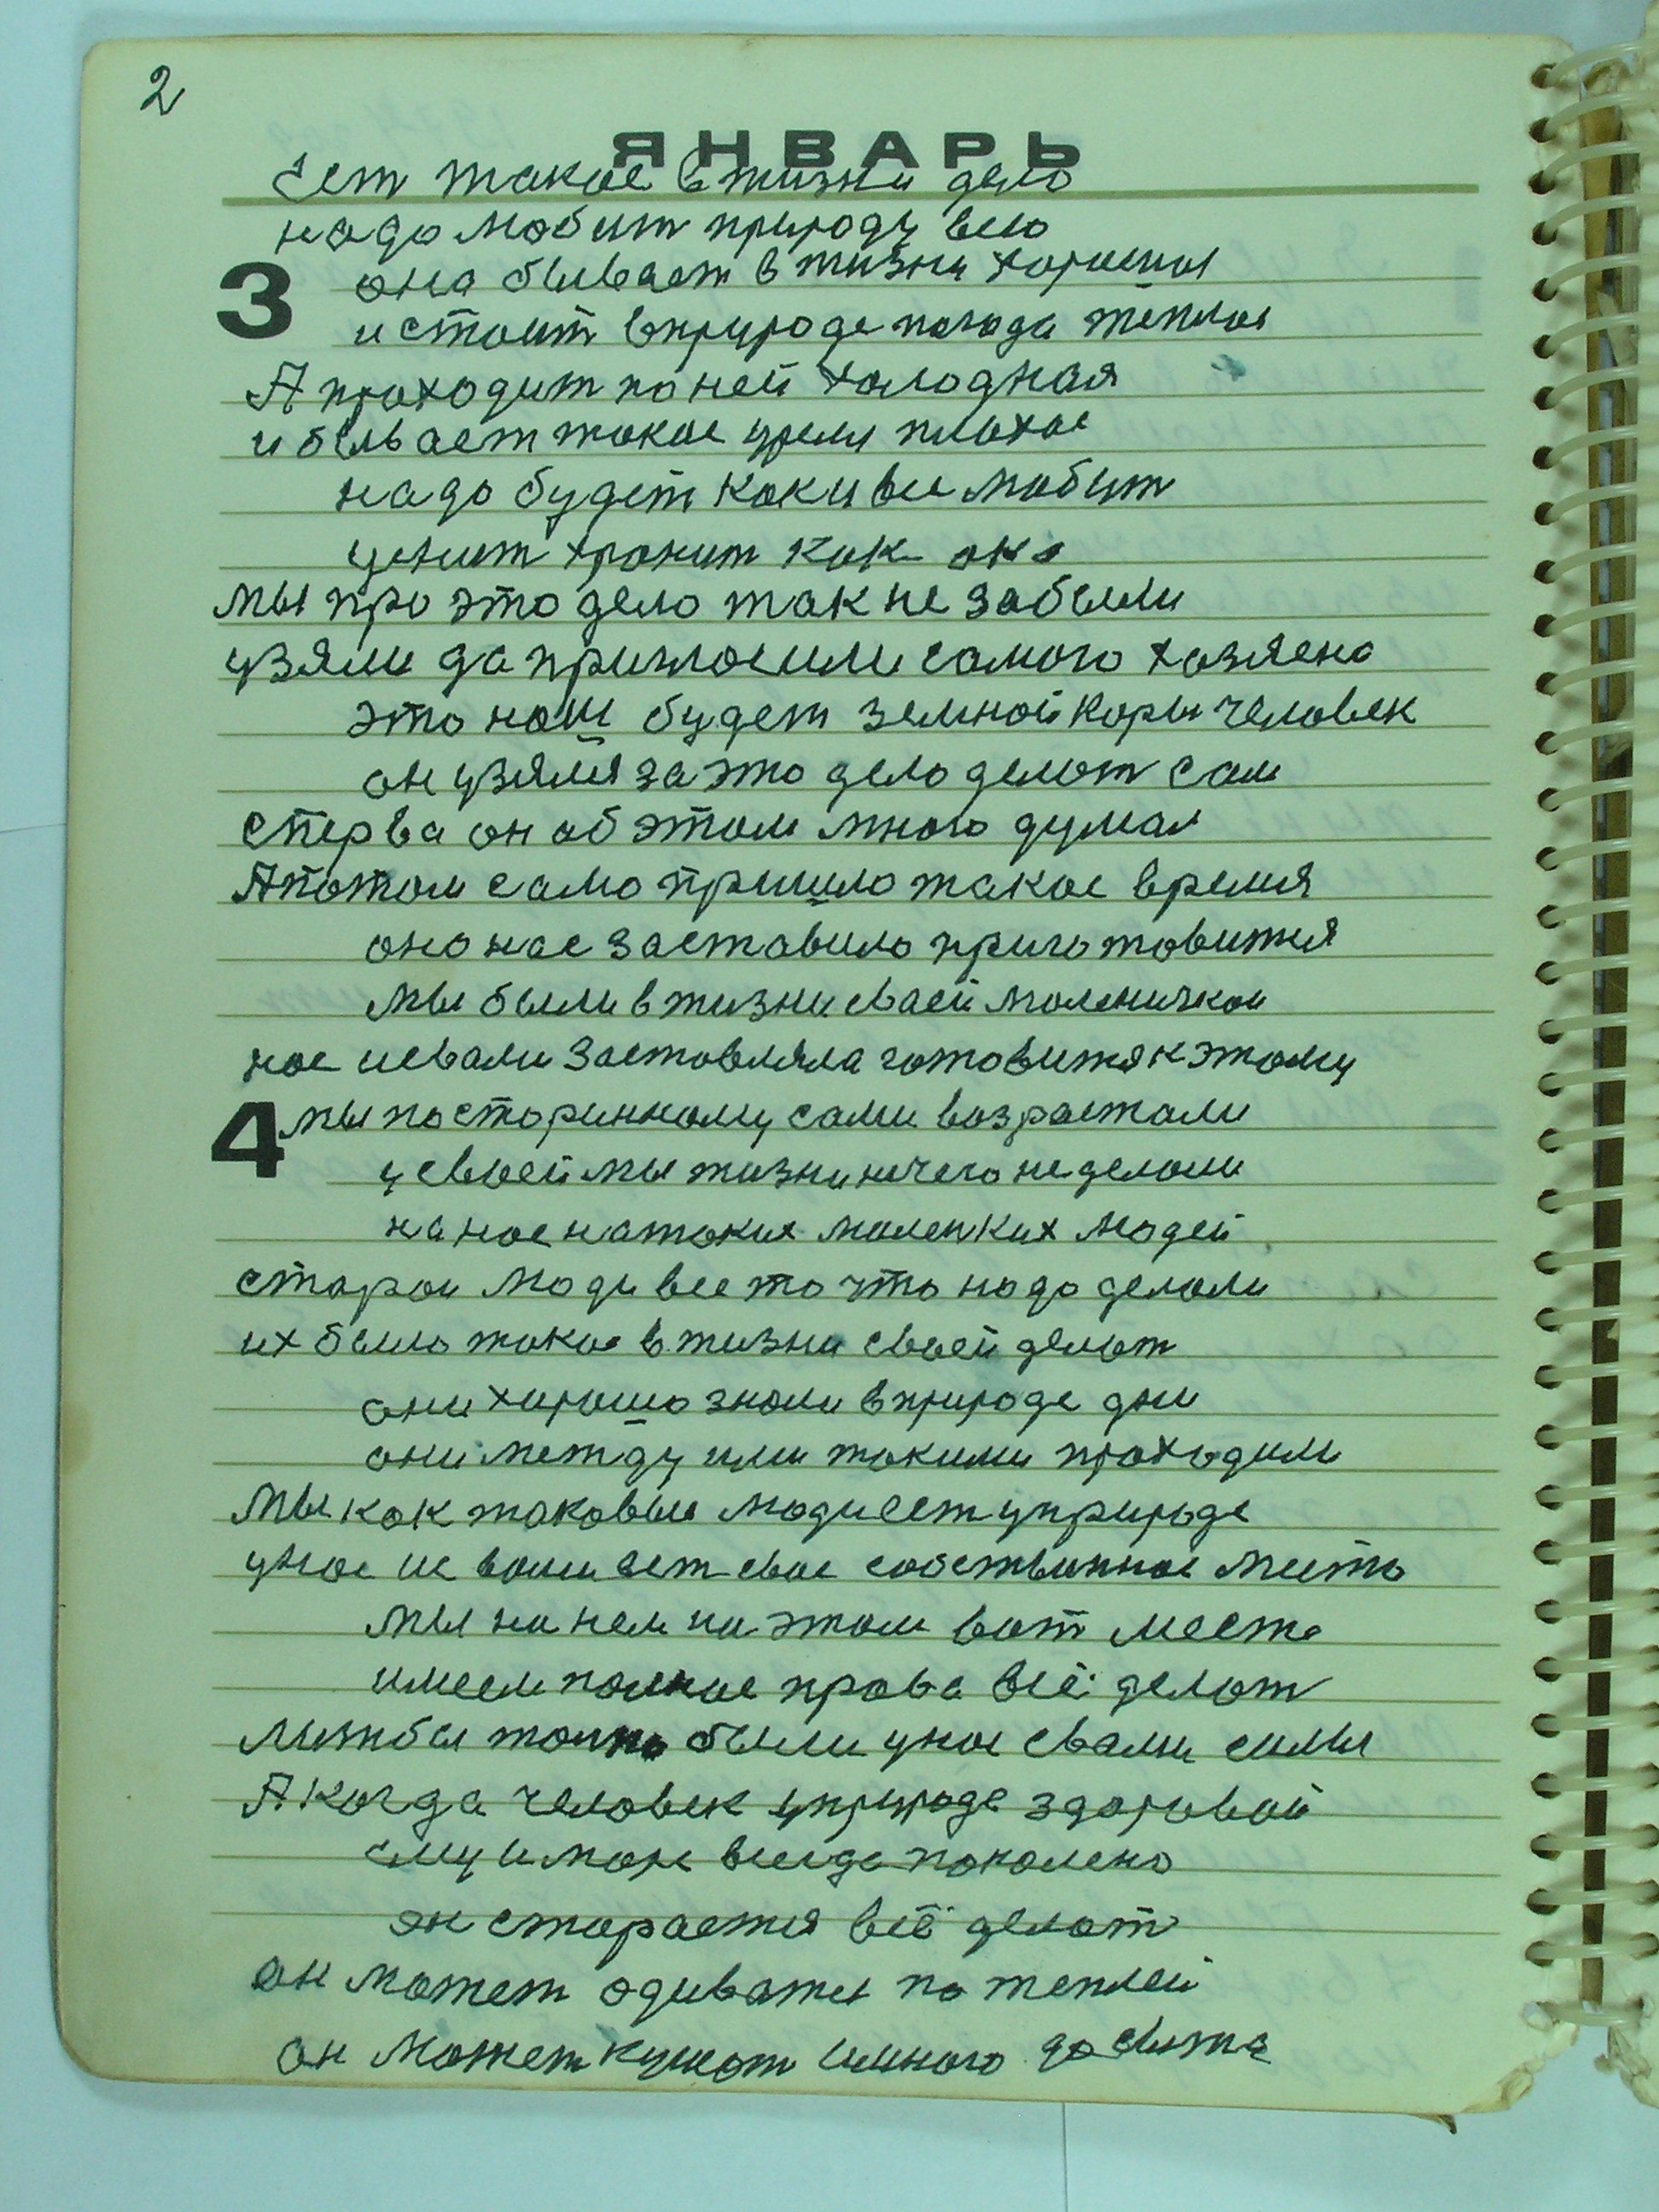 2
ЯНВАРЬ
Ест такое в жизни дело
надо любит природу всю
3
она бывает в жизни хорошая
и стоит в природе погода тёплая
А проходит по ней холодная
и бывает такое время плохое
надо будет как и все любит
ценит хранит как око
мы про это дело так не забыли
узяли да пригласили самого хозяена
это наш будет земной коры человек
он узялся за это дело делат сам
сперва он об этом много думал
А потом само пришло такое время
оно нас заставило приготовится
мы были в жизни сваей маленичкаи
нас свами заставляла готовится к этому
4
мы по старинному сами возрастали
у своей мы жизни ничего не делали
на нас на таких маленких людей
староя люди все то что надо делали
их было такое в жизни своей делат
они хорошо знали в природе дни
они между ими такими проходили
Мы как таковые люди ест у природе
у нас с вами ест свае собственное место
мы на нем на этом вот месте
имеем полное права всё делат
лижбы только были у нас с вами силы
А когда человек у природе здоровай
ему и море всегда по колено
он старается всё делат
он может одиватся по теплей
он может кушат много до сыта